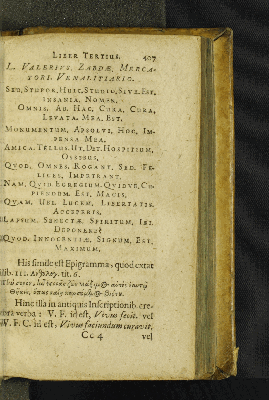 LIBER TERTIUS. 407
L. VALERIUS. ZABDÆ, MERCA-
TORI. VENALITIARIO.
SED, STUPOR. HUIC. STUDIO, SIVE. EST.
INSANIA, NOMEN.
OMNIS, AB. HAC. CURA, CURA,
LEVATA. MEA. EST.
MONUMENTUM, ABSOLVI, HOC, IM-
PENSA MEA.
AMICA. TELLUS. UT. DET. HOSPITIUM,
OSSIBUS.
QUOD, OMNES, ROGANT, SED, FE-
LICES, IMPETRANT.
NAM, QUID EGREGIUM, QUIDVE, CU-
PIENDUM. EST, MAGIS,
QUAM, UBI, LUCEM, LIBERTATIS,
ACCEPERIS,
LAPSUM, SENECTÆ SPIRITUM, IBI
DEPONERE?
QUOD, INNOCENTIÆ, SIGNUM, EST,
MAXIMUM.
His simile est Epigramma, quod extat
lib. III. tit. 6.
Hinc illa in antiquis Inscriptionib. cre-
bra verba: V. F. id est, Vivus fecit. vel
V. F. C. id est, Vivus faciundum curavit,
Cc 4 vel